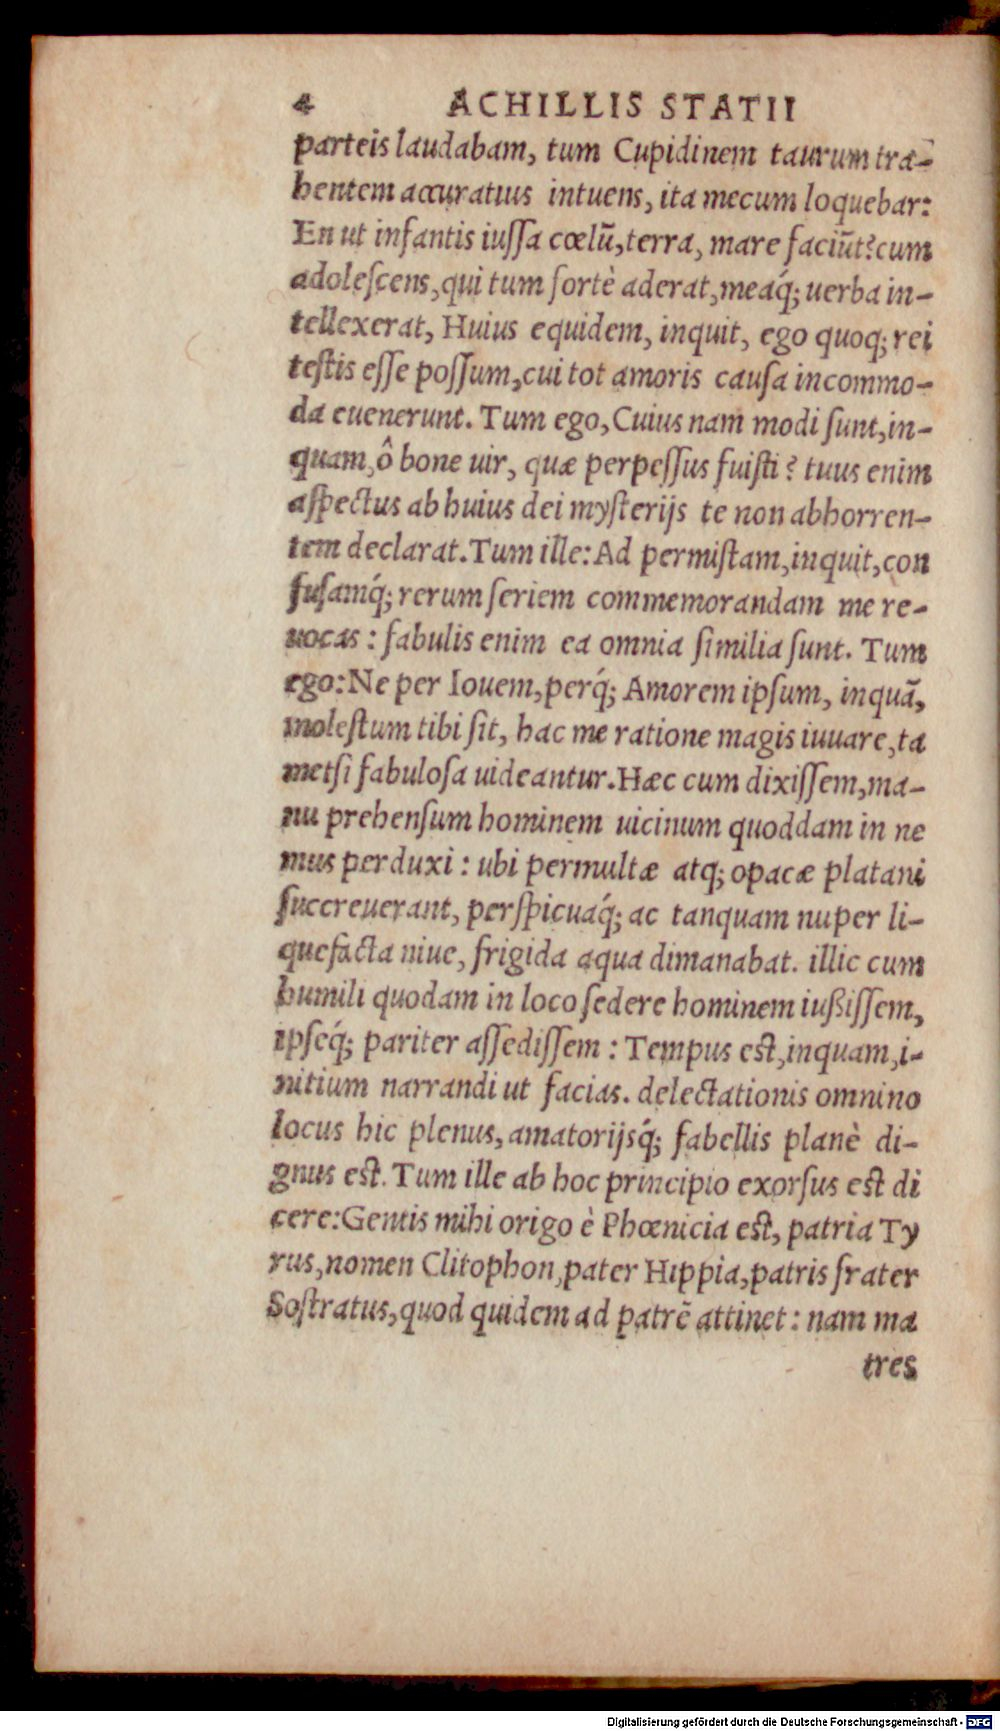 4 ACHILLIS STATII
parteis laudabam, tum Cupidinem taurum tra-
hentem accuratius intuens, ita mecum loquebar:
En ut infantis iussa cœlū, terra, mare faciūt? cum
adolescens, qui tum fortè aderat, meaq́; uerba in-
tellexerat, Huius equidem, inquit, ego quoq; rei
testis esse possum, cui tot amoris causa incommo-
da euenerunt. Tum ego, Cuius nam modi sunt, in-
quam, ô bone uir, quæ perpessus fuisti? tuus enim
aspectus ab huius dei mysterijs te non abhorren-
tem declarat. Tum ille: Ad permistam, inquit, con
fusamq́; rerum seriem commemorandam me re-
uocas: fabulis enim ea omnia similia sunt. Tum
ego: Ne per Iouem, perq́; Amorem ipsum, inquā,
molestum tibi sit, hac me ratione magis iuuare, ta
metsi fabulosa uideantur. Hæc cum dixissem, ma-
nu prehensum hominem uicinum quoddam in ne
mus perduxi: ubi permultæ atq; opacæ platani
succreuerant, perspicuaq́; ac tanquam nuper li-
quefacta niue, frigida aqua dimanabat. illic cum
humili quodam in loco sedere hominem iußissem,
ipseq́; pariter assedissem: Tempus est, inquam, i-
nitium narrandi ut facias. delectationis omnino
locus hic plenus, amatorijsq́; fabellis planè di-
gnus est. Tum ille ab hoc principio exorsus est di
cere: Gentis mihi origo è Phœnicia est, patria Ty
rus, nomen Clitophon, pater Hippia, patris frater
Sostratus, quod quidem ad patrē attinet: nam ma
tres
Digitalisierung gefördert durch die Deutsche Forschungsgemeinschaft - DFG